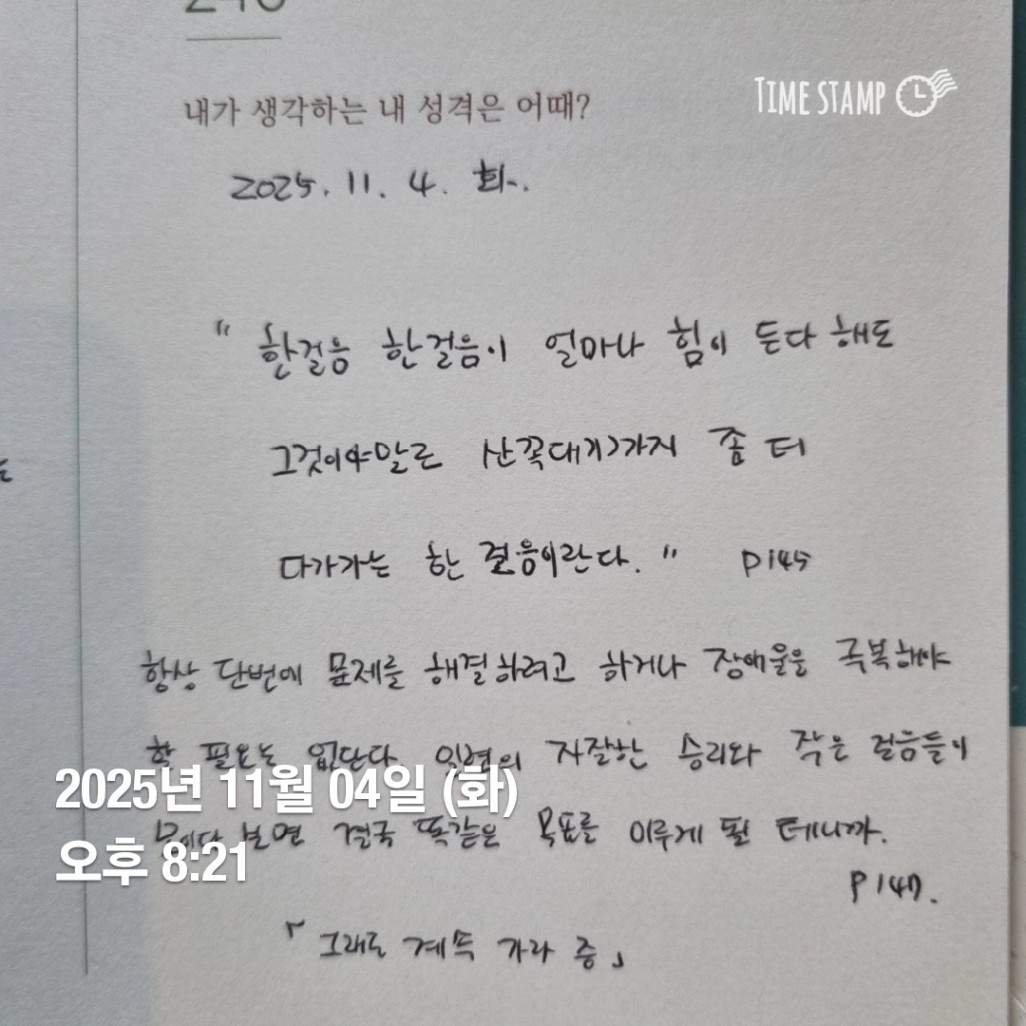 내가 생각하는 내 성격은 어때?
TIME STAMP
2025. 11. 4. 화.
" 한걸음 한걸음이 얼마나 힘이 든다 해도
그것이야말로 산꼭대기가지 좀 더
다가가는 한 걸음이란다. " P145
항상 단번에 문제를 해결하려고 하거나 장애물을 극복해야
할 필요는 없단다. 일련의 자잘한 승리와 작은 걸음들이
보면 결국 똑같은 목표를 이루게 될 테니까.
P147.
「 그래도 계속 가라 중」
2025년 11월 04일 (화)
오후 8:21